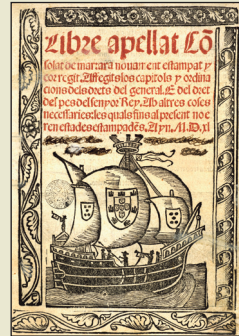 Libre apellat Cõ
solat de mar: ara nouament estampat y
corregit. Affegits los capitols y ordina
cions dels drets del general. E del dret
del pes del senyor Rey. Ab altres coses
necessaries: les quals fins al present no e
ren estades estampades. Any. M.D.xl